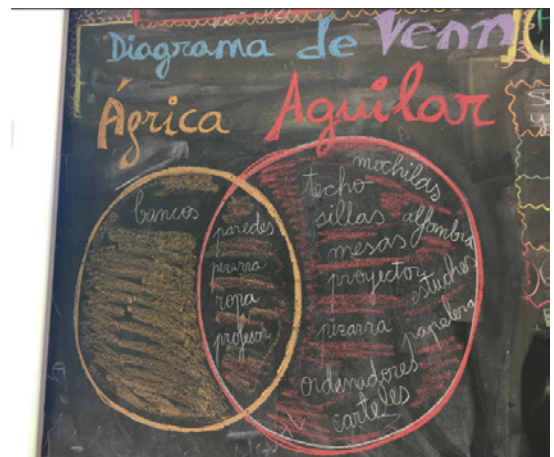 Diagrama de Venn
Ágrica Aguilar
bancos
paredes
pizarra
ropa
profesor
mochilas
techo
sillas
alfombra
mesas
proyector
estuches
pizarra
papelera
ordenadores
carteles